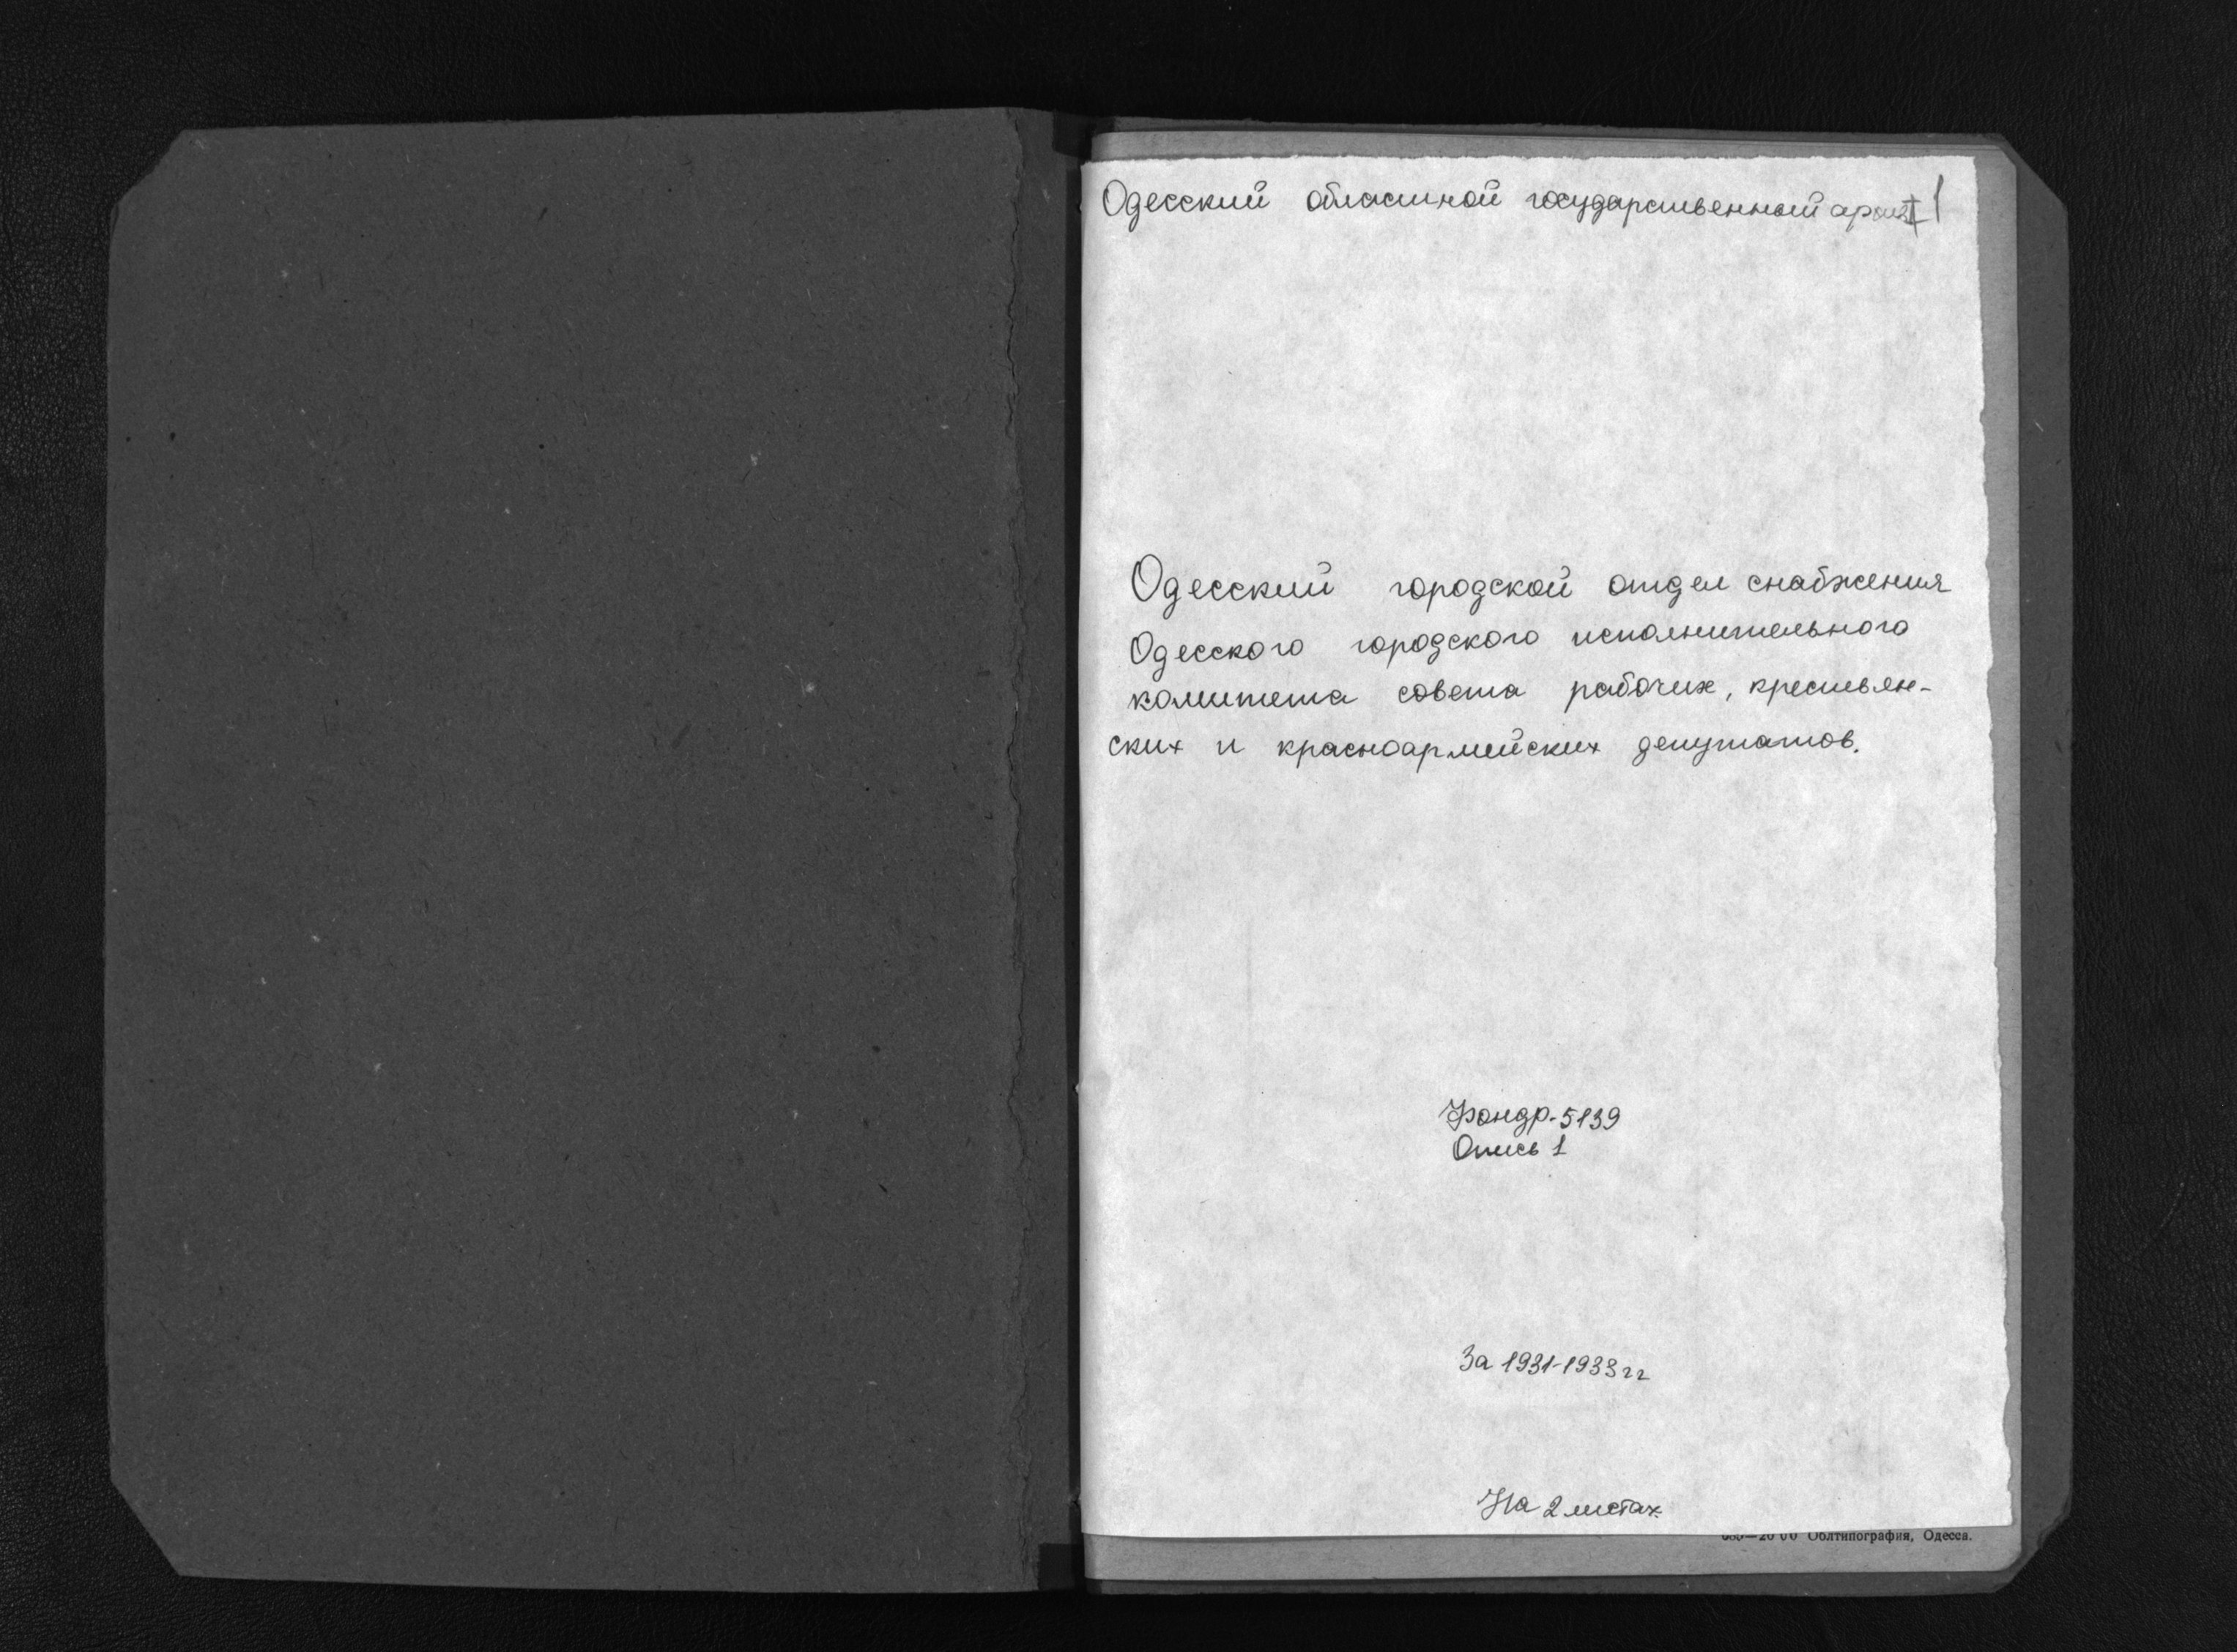 Одесский областной государственный архив 1
Одесский городской отдел снабжения
Одесского городского исполнительного
комитета совета рабочих, крестьян-
ских и красноармейских депутатов.
Фонд р-5139
Опись 1
За 1931-1933 гг
На 2 листах.
Облтипография, Одесса.